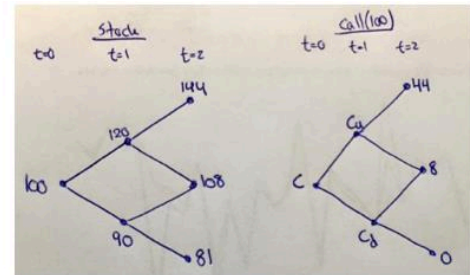 Stock
t=0 t=1 t=2
144
120
100 108
90
81
Call(100)
t=0 t=1 t=2
44
Cu
C 8
Cd
0